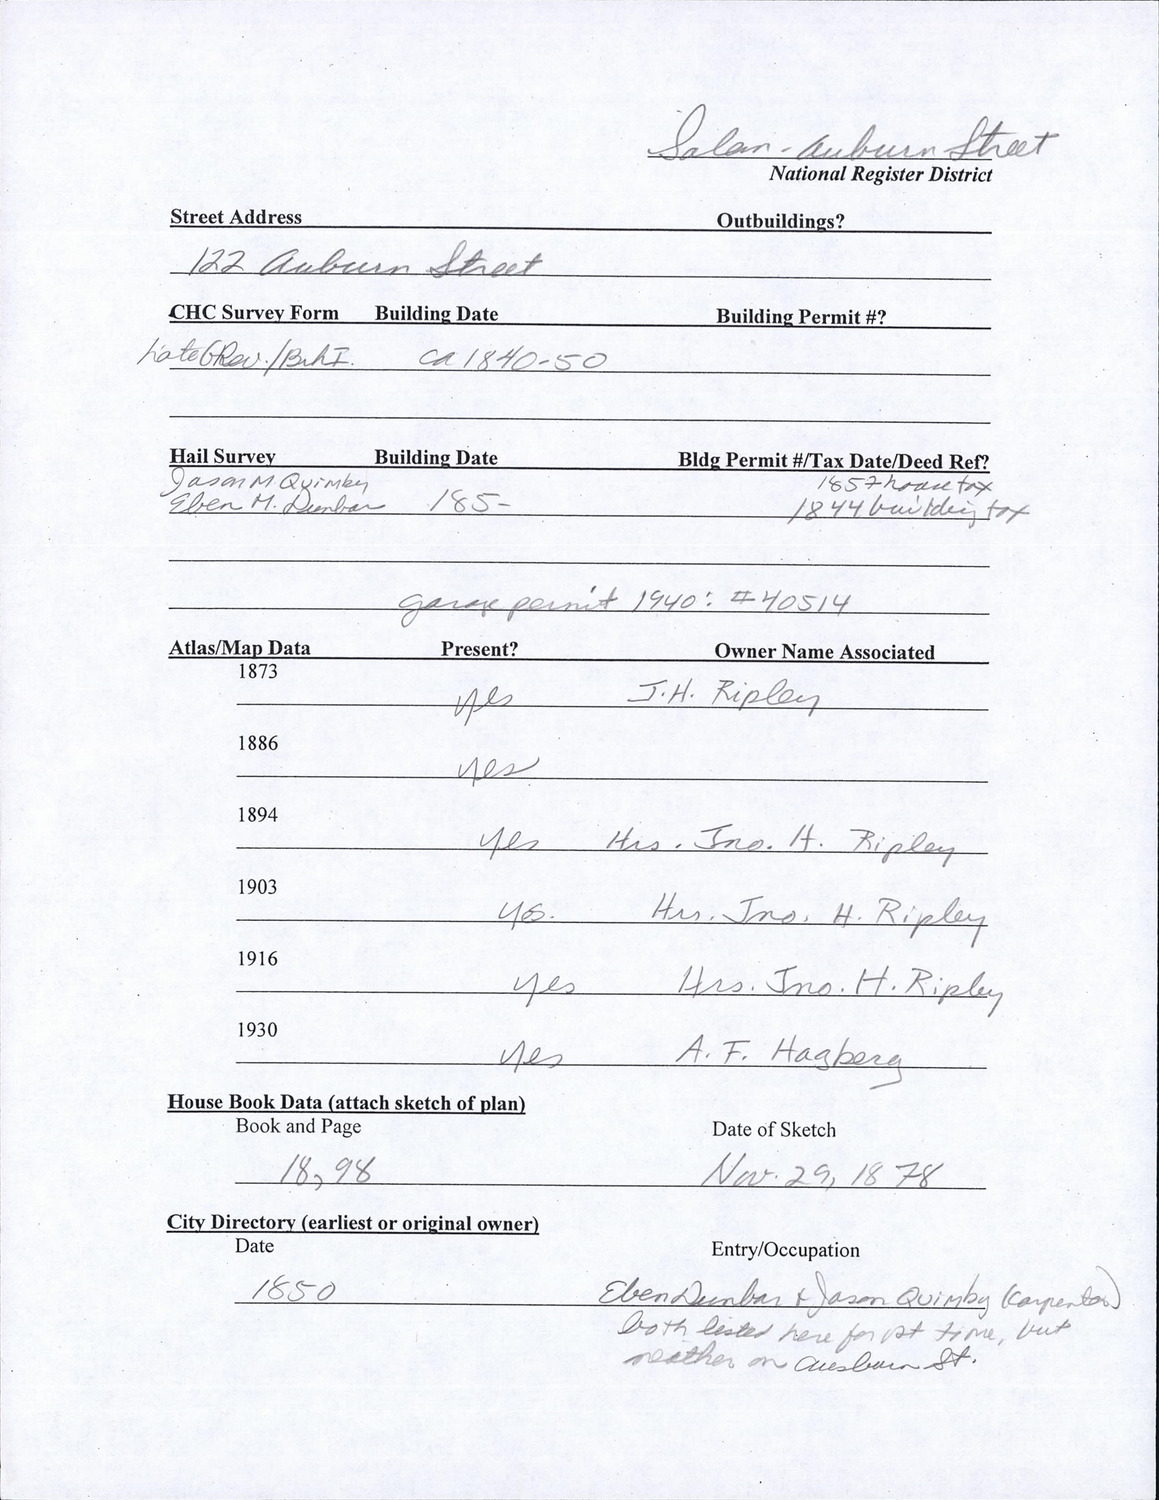 Salem-Auburn Street
National Register District
Street Address Outbuildings?
122 Auburn Street
CHC Survey Form Building Date Building Permit #?
Late GRev./BrkI. ca 1840-50
Hail Survey Building Date Bldg Permit #/Tax Date/Deed Ref?
Jason M Quimby 1857 house tax
Eben M. Dunbar 185- 1844 building tax
garage permit 1940: #40514
Atlas/Map Data Present? Owner Name Associated
1873
yes J.H. Ripley
1886
yes
1894
yes Hrs. Jno. H. Ripley
1903
yes. Hrs. Jno. H. Ripley
1916
yes Hrs. Jno. H. Ripley
1930
yes A. F. Hagberg
House Book Data (attach sketch of plan)
Book and Page Date of Sketch
18, 98 Nov. 29, 1878
City Directory (earliest or original owner)
Date Entry/Occupation
1850 Eben Dunbar & Jason Quimby (carpenter)
both listed here for 1st time, but
neither on Auburn St.